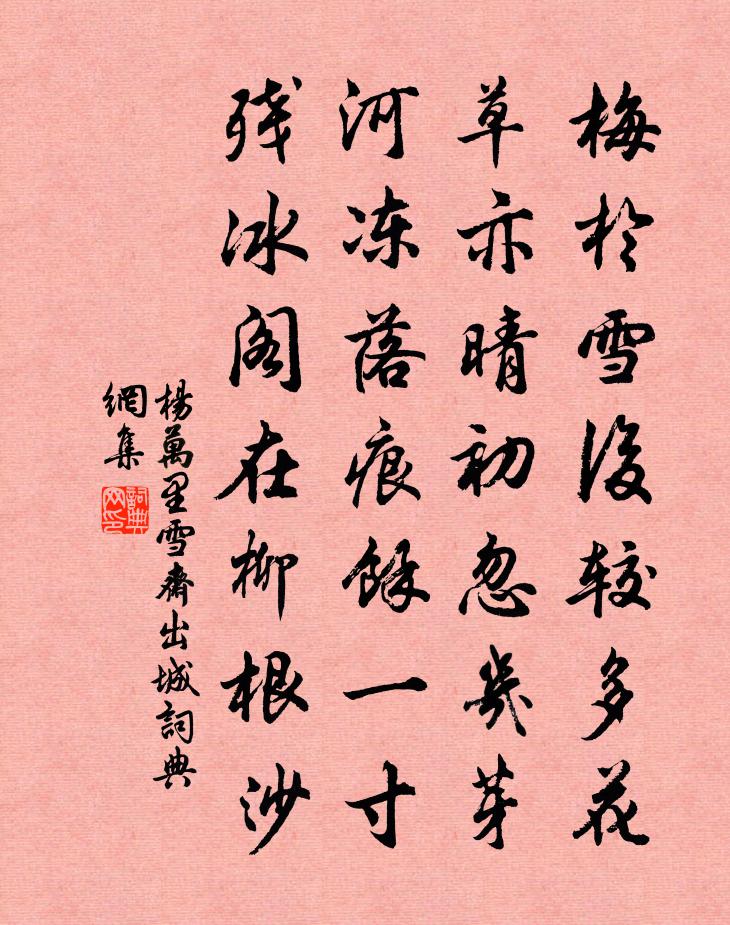 梅於雪後较多花
草亦晴初忽幾芽
河冻落痕餘一寸
残冰阁在柳根沙
楊萬里雪霽出城詞典
網集
詞典
网印